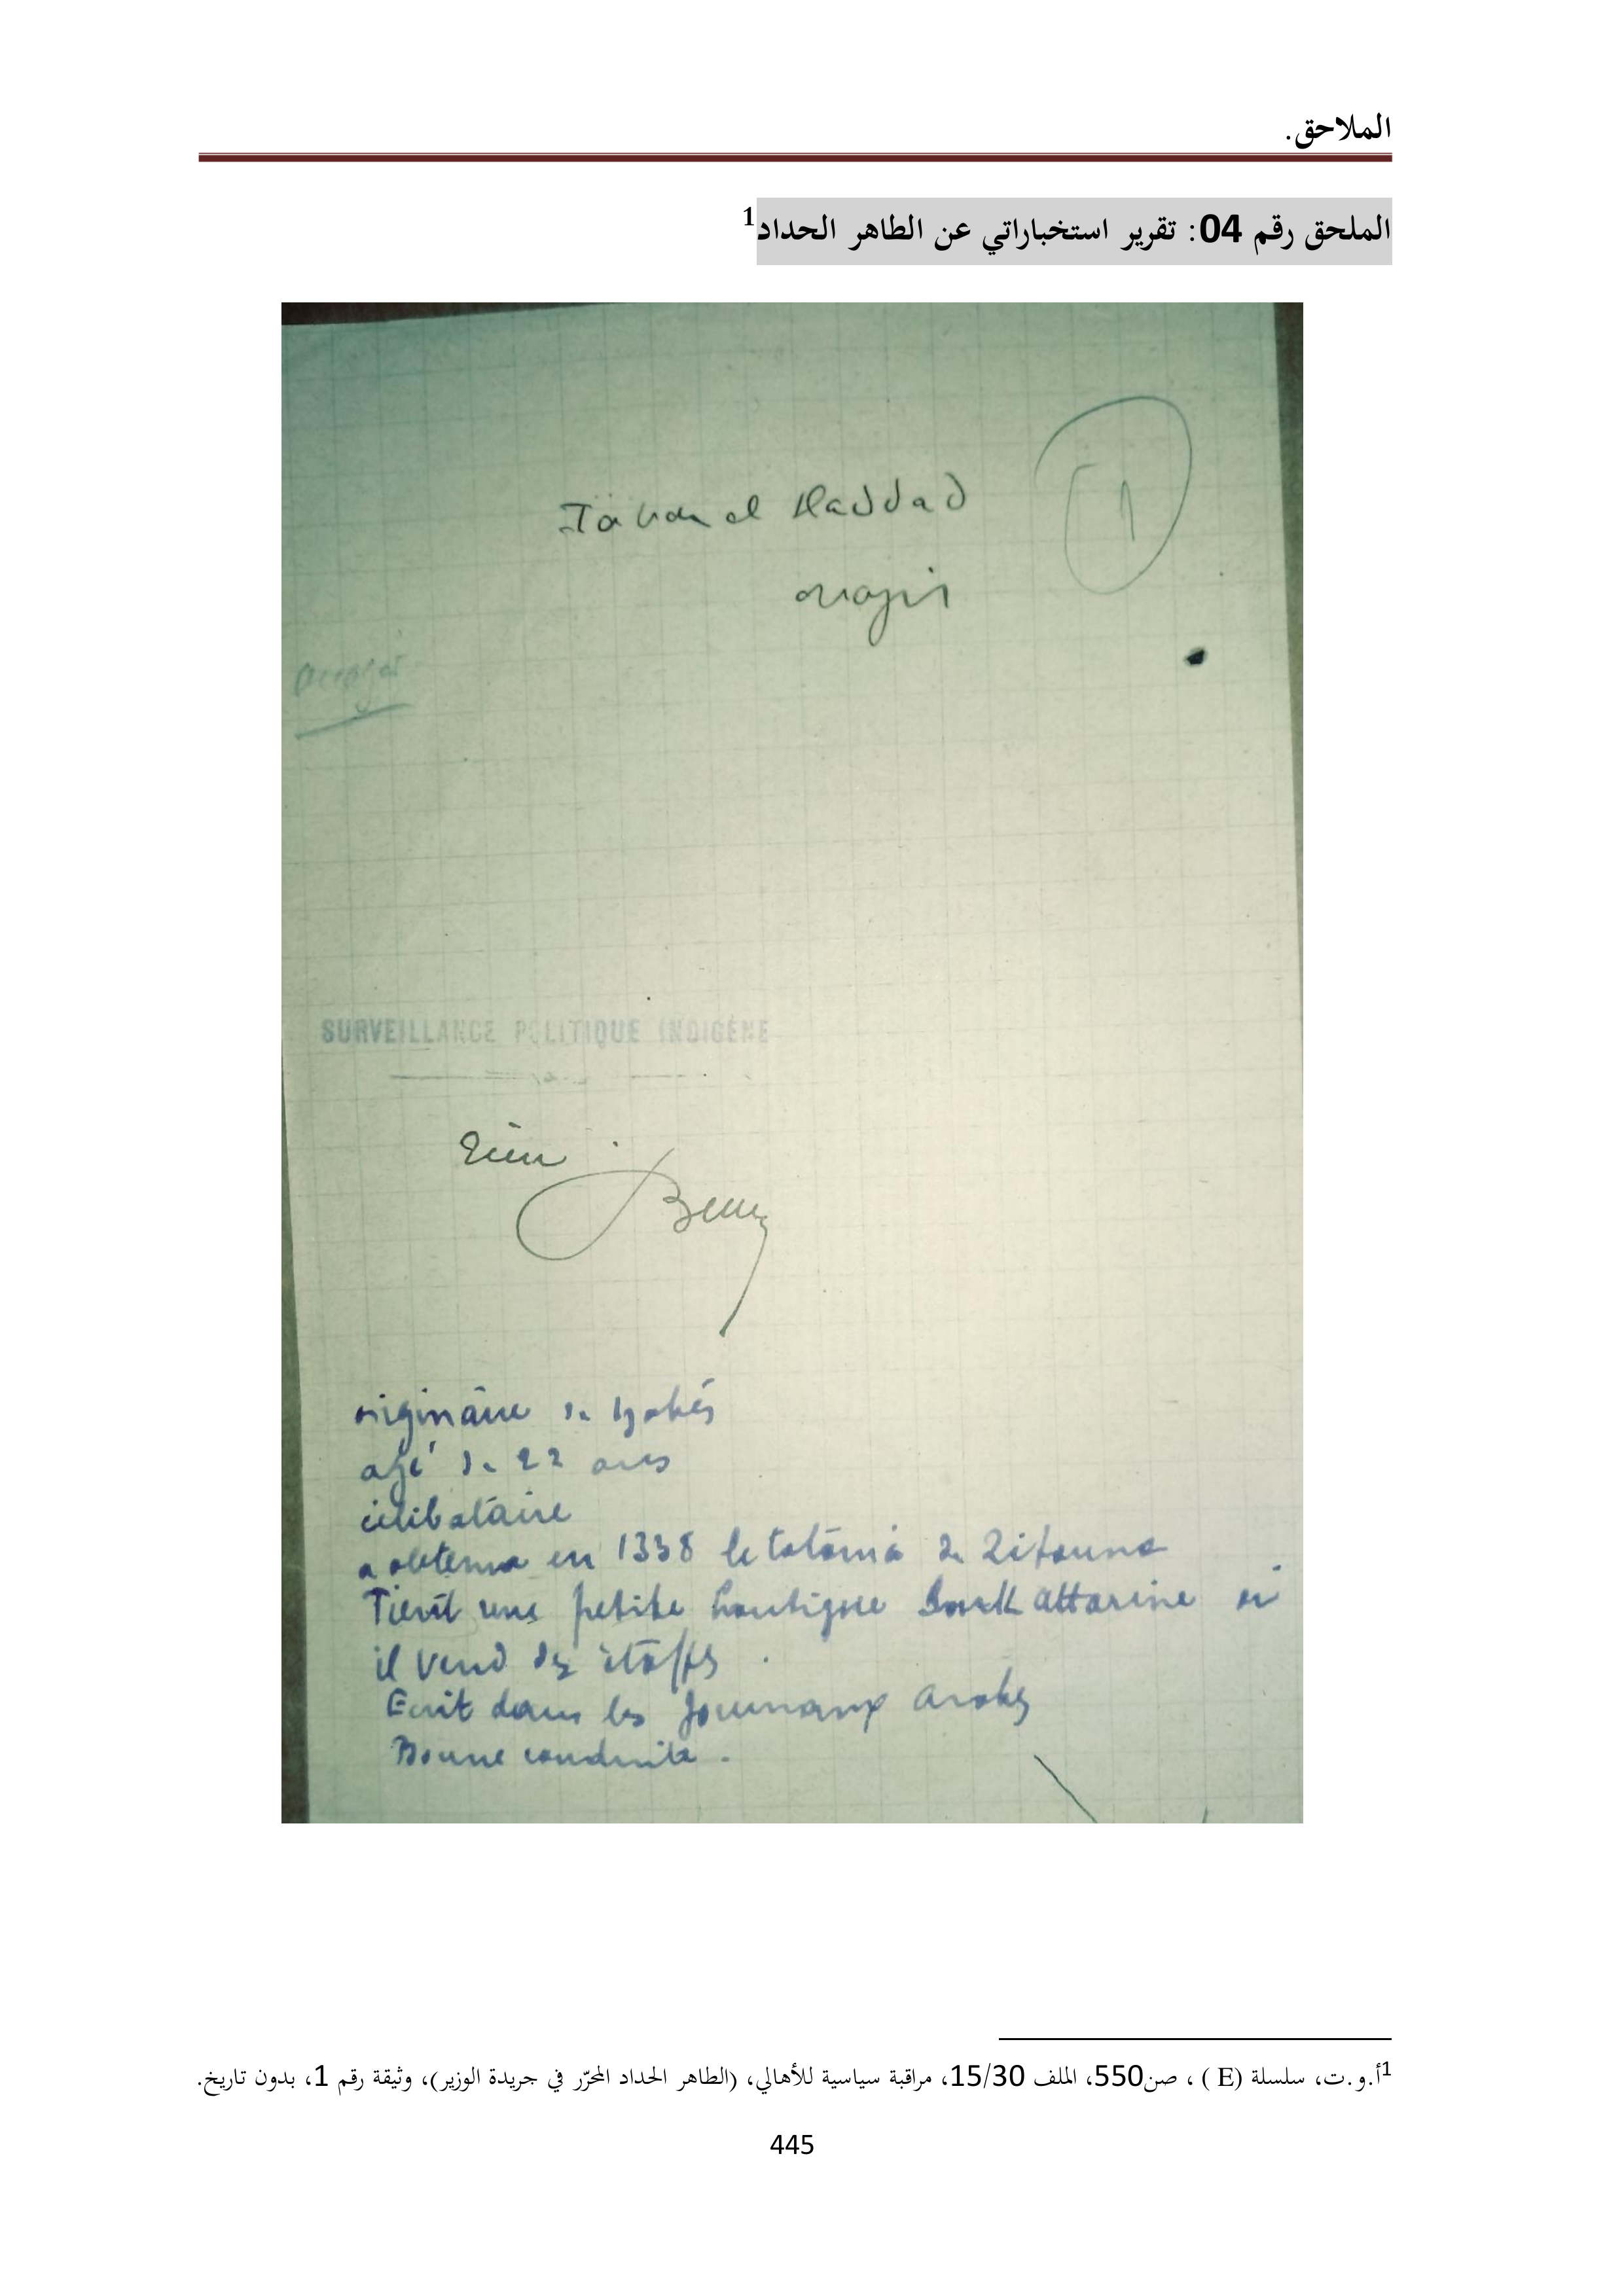 الملاحق.
الملحق رقم 04: تقرير استخباراتي عن الطاهر الحداد1
Tahar el Haddad
1
SURVEILLANCE POLITIQUE INDIGÈNE
originaire de Gabés
agé de 22 ans
célibataire
a obtenu en 1338 le tatouia de Zitouna
Tient une petite boutique Souk Attarine où
il vend des étoffes.
Ecrit dans les journaux arabes
Bonne conduite.
1أ.و.ت، سلسلة (E ) ، صن550، الملف 15/30، مراقبة سياسية للأهالي، (الطاهر الحداد المحرّر في جريدة الوزير)، وثيقة رقم 1، بدون تاريخ.
445